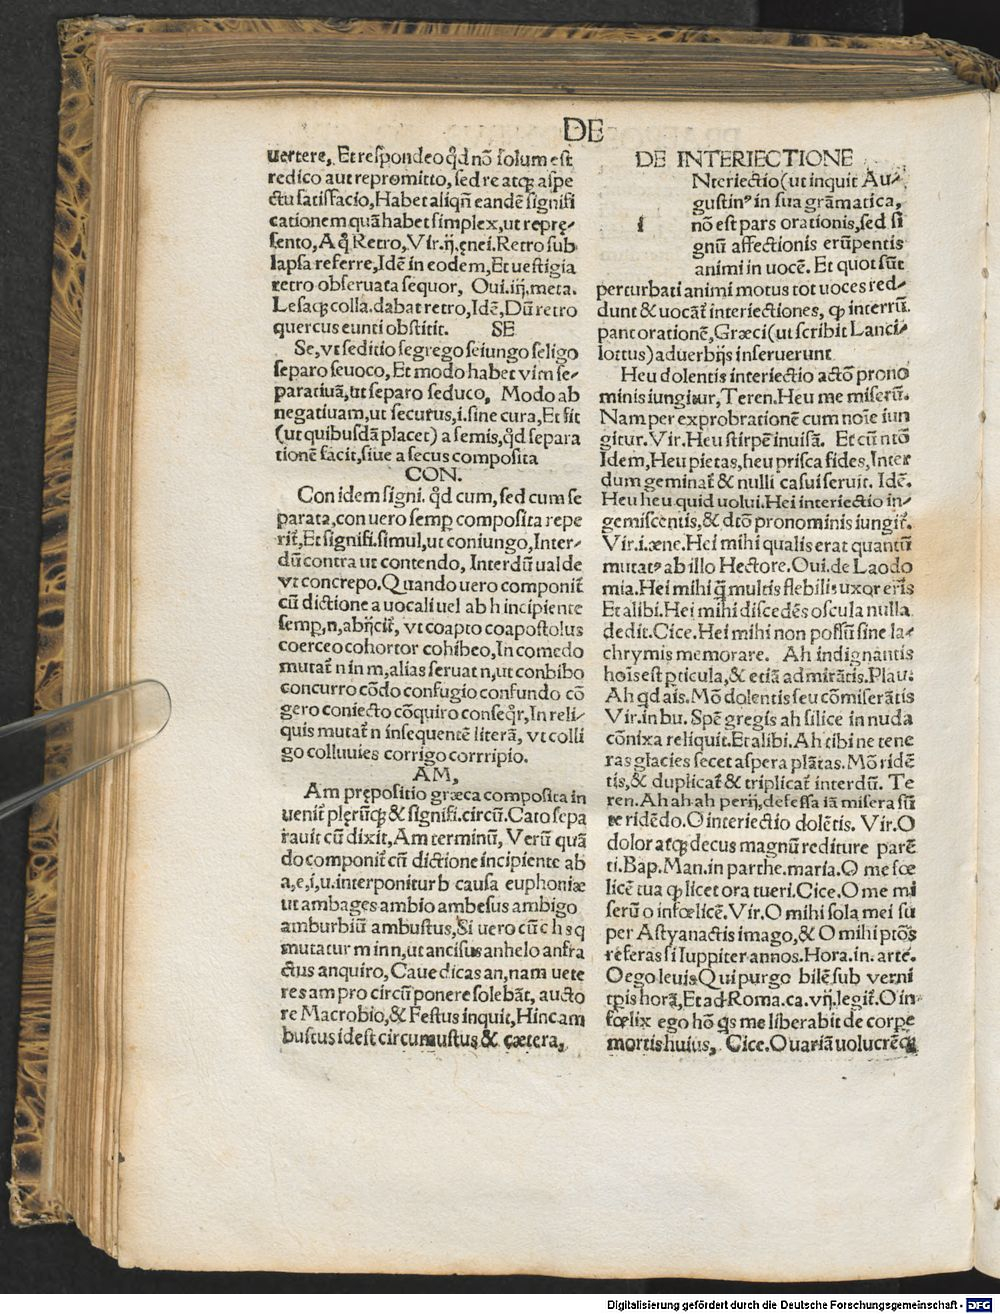 DE
uertere, Et respondeo qd̓ nō solum est
redico aut repromitto, sed re atq; aspe
ctu satisfacio, Habet aliqn̄ eandē signifi
cationem quā habet simplex, ut reprę-
sento, A q̓ Retro, Vir. ij. ęnei. Retro sub
lapsa referre, Idē in eodem, Et uestigia
retro obseruata sequor, Oui. iij. meta.
Lesaq; colla. dabat retro, Idē, Dū retro
quercus eunti obstitit. SE
Se, vt seditio segrego seiungo seligo
separo seuoco, Et modo habet vim se-
paratiuā, ut separo seduco, Modo ab
negatiuam, ut securus, .i. sine cura, Et fit
(ut quibusdā placet) a semis, qd̓ separa
tionē facit, siue a secus composita
CON.
Con idem signi. qd̓ cum, sed cum se
parata, con uero semp̱ composita repe
rit̃, Et signifi. simul, ut coniungo, Inter-
dū contra ut contendo, Interdū ualde
vt concrepo. Quando uero componit̃
cū dictione a uocali uel ab h incipiente
semp̱, n, abijcit̃, vt coapto coapostolus
coerceo cohortor cohibeo, In comedo
mutat̃ n in m, alias seruat n, ut conbibo
concurro cōdo confugio confundo cō
gero coniecto cōquiro conseq̓r, In reli-
quis mutat̃ n in sequentē literā, vt colli
go colluuies corrigo corrripio.
AM,
Am prępositio græca composita in
uenit̃ plęrūq; & signifi. circū. Cato sepa
rauit cū dixit, Am terminū, Verū quā
do componit̃ cū dictione incipiente ab
a, e, i, u. interponitur b causa euphoniæ
ut ambages ambio ambesus ambigo
amburbiū ambustus, Si uero cū c h s q
mutatur m in n, ut ancisus anhelo anfra
ctus anquiro, Caue dicas an, nam uete
res am pro circū ponere solebāt, aucto
re Macrobio, & Festus inquit, Hinc am
bustus idest circumustus & cætera,
DE INTERIECTIONE
i
Nteriectio (ut inquit Au-
gustinꝰ in sua grāmatica,
nō est pars orationis, sed si
gnū affectionis erūpentis
animi in uocē. Et quot sūt
perturbati animi motus tot uoces red-
dunt & uocāt̃ interiectiones, ꝙ interrū.
pant orationē, Græci (ut scribit Lanci-
lottus) aduerbijs inseruerunt
Heu dolentis interiectio actō prono
minis iungitur, Teren. Heu me miserū.
Nam per exprobrationē cum noīe iun
gitur. Vir. Heu stirpē inuisā. Et cū ntō
Idem, Heu pietas, heu prisca fides, Inter
dum geminat̃ & nulli casui seruit. Idē.
Heu heu quid uolui. Hei interiectio in-
gemiscentis, & dtō pronominis iungit̃.
Vir. i. æne. Hei mihi qualis erat quantū
mutatꝰ ab illo Hectore. Oui. de Laodo
mia. Hei mihi q̄ multis flebilis uxor eris
Et alibi. Hei mihi discedēs oscula nulla
dedit. Cice. Hei mihi non possū sine la-
chrymis memorare. Ah indignantis
hois est p̱ticula, & etiā admirātis. Plau.
Ah qd ais. Mō dolentis seu cōmiserātis
Vir. in bu. Spē gregis ah silice in nuda
cōnixa reliquit. Et alibi. Ah tibi ne tene
ras glacies secet aspera plātas. Mō ridē
tis, & duplicat̃ & triplicat̃ interdū. Te
ren. Ah ah ah perij, defessa iā misera sū
te ridēdo. O interiectio dolētis. Vir. O
dolor atq; decus magnū rediture parē
ti. Bap. Man. in parthe. maria. O me fœ
licē tua ꝙ licet ora tueri. Cice. O me mi
serū o infœlicē. Vir. O mihi sola mei su
per Astyanactis imago, & O mihi ptōs
referas si Iuppiter annos. Hora. in. arte.
O ego leuis Qui purgo bilē sub verni
tp̱is horā, Et ad Roma. ca. vij. legit̃. O in-
fœlix ego hō q̓s me liberabit de corpe
mortis huius, Cice. O uariā uolucrēq;
Digitalisierung gefördert durch die Deutsche Forschungsgemeinschaft - DFG